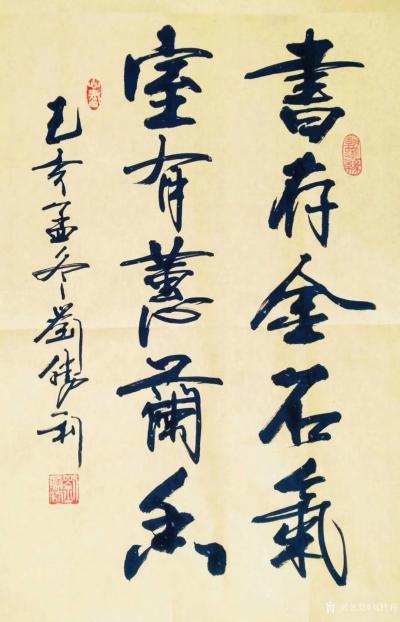 書存金石氣
室有蕙蘭香
己亥孟冬劉勝利